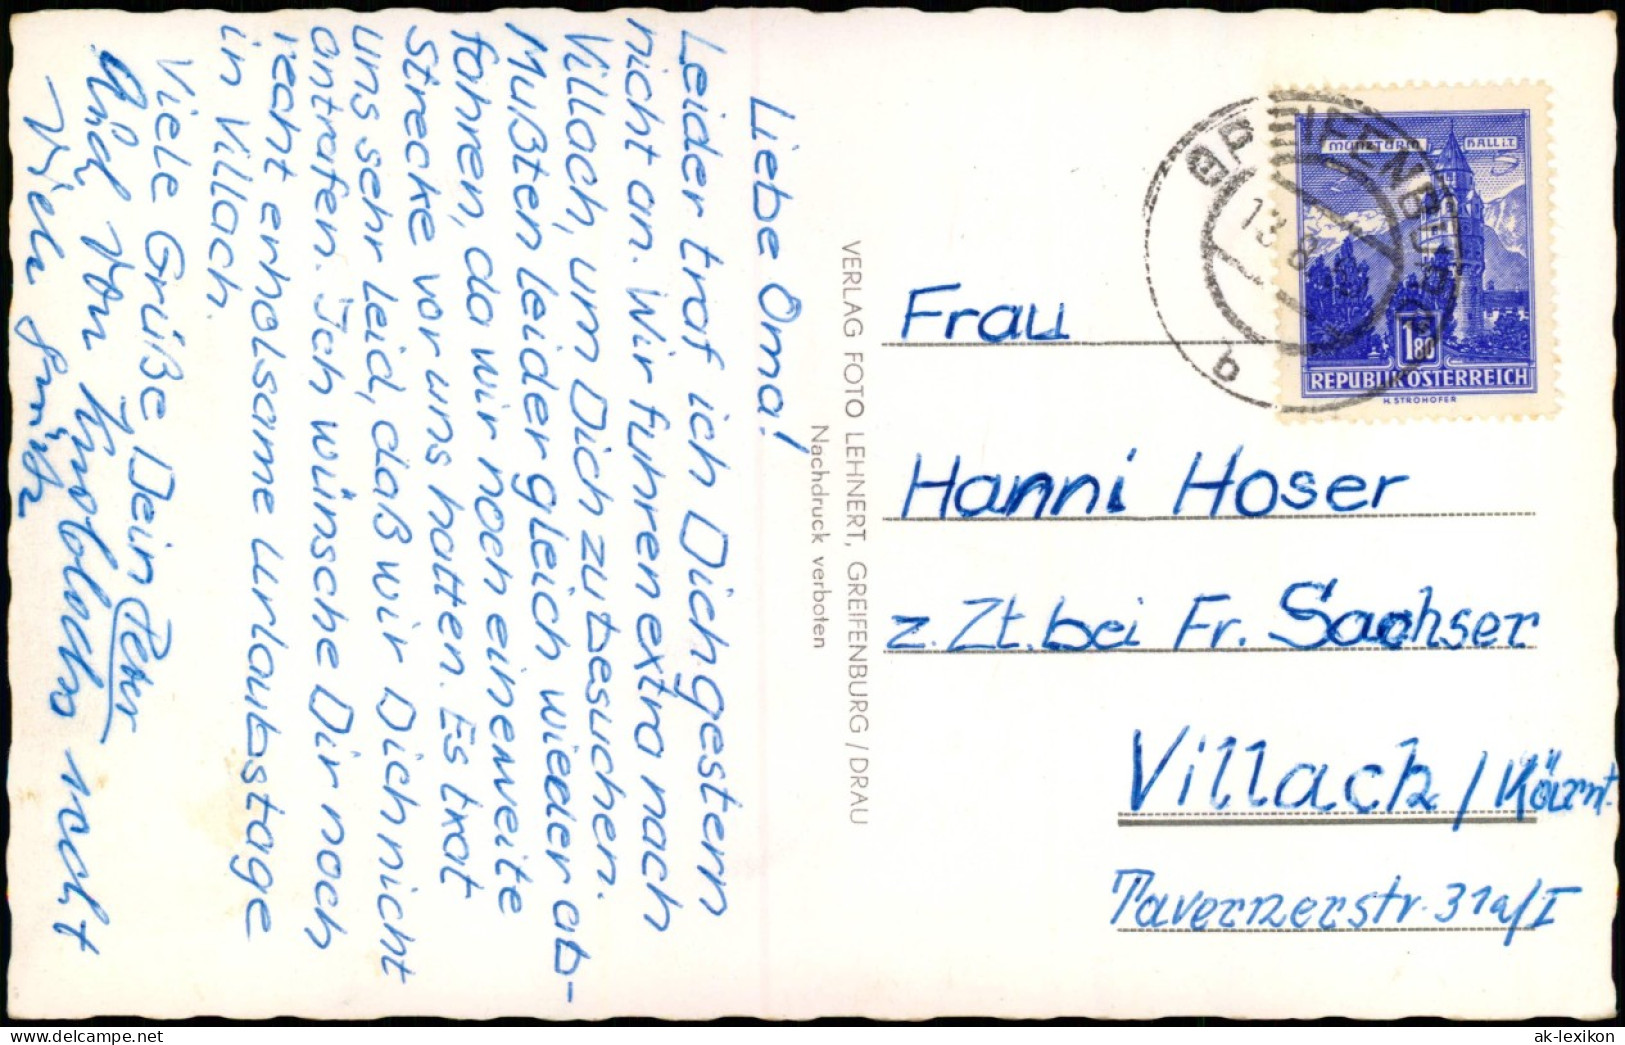 Liebe Oma!
Leider traf ich Dich gestern
nicht an. Wir fuhren extra nach
Villach, um Dich zu besuchen.
Mußten leider gleich wieder ab-
fahren, da wir noch eine weite
Strecke vor uns hatten. Es trat
uns sehr leid, daß wir Dich nicht
antrafen. Ich wünsche Dir noch
recht erholsame Urlaubstage
in Villach.
Viele Grüße Dein Peter
Auch von
Viele Grüße
VERLAG FOTO LEHNERT, GREIFENBURG / DRAU
Nachdruck verboten
GREIFENBURG
13. 8.
b
MÜNZTURM HALL I.T.
1.80
REPUBLIK ÖSTERREICH
H. STROHOFER
Frau
Hanni Hoser
z. Zt. bei Fr. Sachser
Villach / Kärnt.
Tavernerstr. 31a/I
© ak-ansichtskarten.de
ak-lexikon